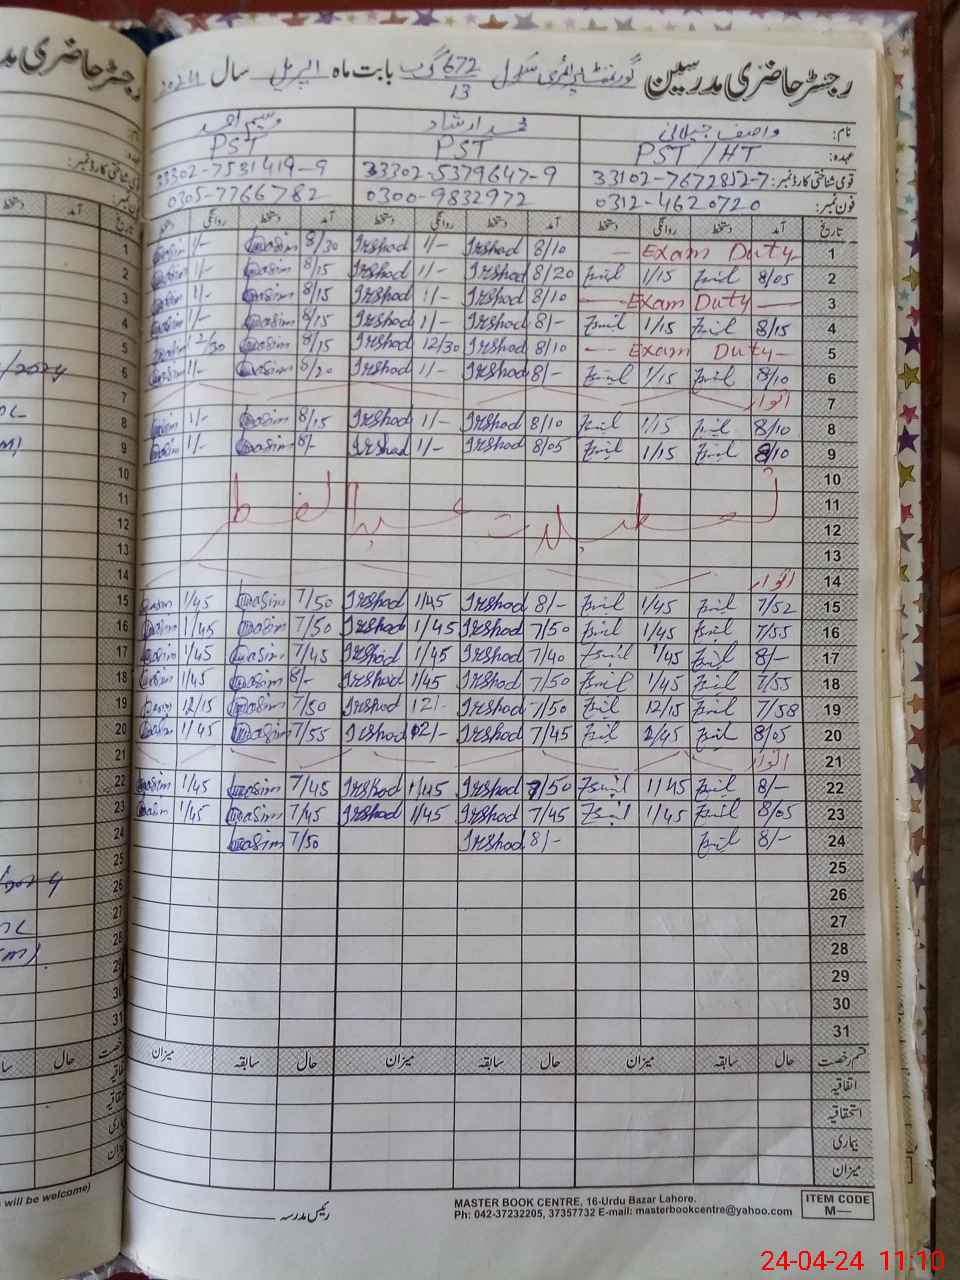 رجسٹر حاضری مدرسین گورنمنٹ پرائمری سکول 672/13 گ ب بابت ماہ اپریل سال 2024
نام: واصف جیلانی محمد ارشاد وسیم احمد
عہدہ: PST/HT PST PST
قومی شناختی کارڈ نمبر: 33102-7672852-7 33302-5379647-9 33302-7531419-9
فون نمبر: 0312-4620720 0300-9832972 0305-7766782
تاریخ آمد دستخط روانگی دستخط آمد دستخط روانگی دستخط آمد دستخط روانگی
1 Exam Duty 8/10 Irshad 1/- Irshad 8/30 Wasim 1/- Wasim
2 8/05 1/15 8/20 Irshad 1/- Irshad 8/15 Wasim 1/- Wasim
3 Exam Duty 8/10 Irshad 1/- Irshad 8/15 Wasim 1/- Wasim
4 8/15 1/15 8/- Irshad 1/- Irshad 8/15 Wasim 1/- Wasim
5 Exam Duty 8/10 Irshad 12/30 Irshad 8/15 Wasim 12/30 Wasim
6 8/10 1/15 8/- Irshad 1/- Irshad 8/20 Wasim 1/- Wasim
7 اتوار
8 8/10 1/15 8/10 Irshad 1/- Irshad 8/15 Wasim 1/- Wasim
9 8/10 1/15 8/05 Irshad 1/- Irshad 8/- Wasim 1/- Wasim
10
11
تعطیلات عید الفطر
12
13
14 اتوار
15 7/52 1/45 8/- Irshad 1/45 Irshad 7/50 Wasim 1/45 Wasim
16 7/55 1/45 7/50 Irshad 1/45 Irshad 7/50 Wasim 1/45 Wasim
17 8/- 1/45 7/40 Irshad 1/45 Irshad 7/45 Wasim 1/45 Wasim
18 7/55 1/45 7/50 Irshad 1/45 Irshad 8/- Wasim 1/45 Wasim
19 7/58 12/15 7/50 Irshad 12/- Irshad 7/50 Wasim 12/15 Wasim
20 8/05 1/45 7/45 Irshad 12/- Irshad 7/55 Wasim 1/45 Wasim
21 اتوار
22 8/- 1/45 7/50 Irshad 1/45 Irshad 7/45 Wasim 1/45 Wasim
23 8/05 1/45 7/45 Irshad 1/45 Irshad 7/45 Wasim 1/45 Wasim
24 8/- 8/- Irshad 7/50 Wasim
25
26
27
28
29
30
31
قسم رخصت حال سابقہ میزان حال سابقہ میزان حال سابقہ میزان
اتفاقیہ
استحقاقیہ
بیماری
میزان
رئیس مدرسہ
MASTER BOOK CENTRE, 16-Urdu Bazar Lahore.
Ph: 042-37232205, 37357732 E-mail: masterbookcentre@yahoo.com
ITEM CODE
M—
will be welcome)
24-04-24 11:10